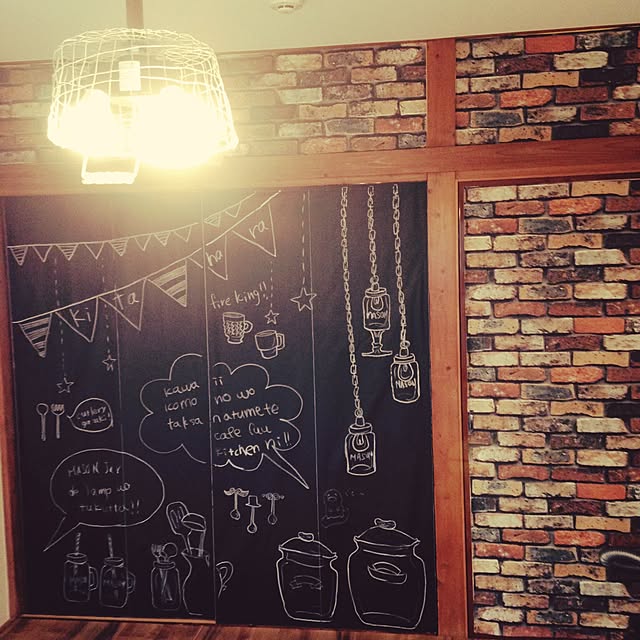 kitahara
fire king!!
MASON
MASON
MASON
kawa ii
icomo no wo
taksa natumete
cafe fuu
kitchen ni!!
MASON Jar
de lamp wo